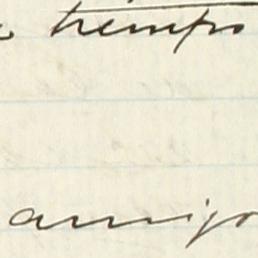 tiempo
amigo